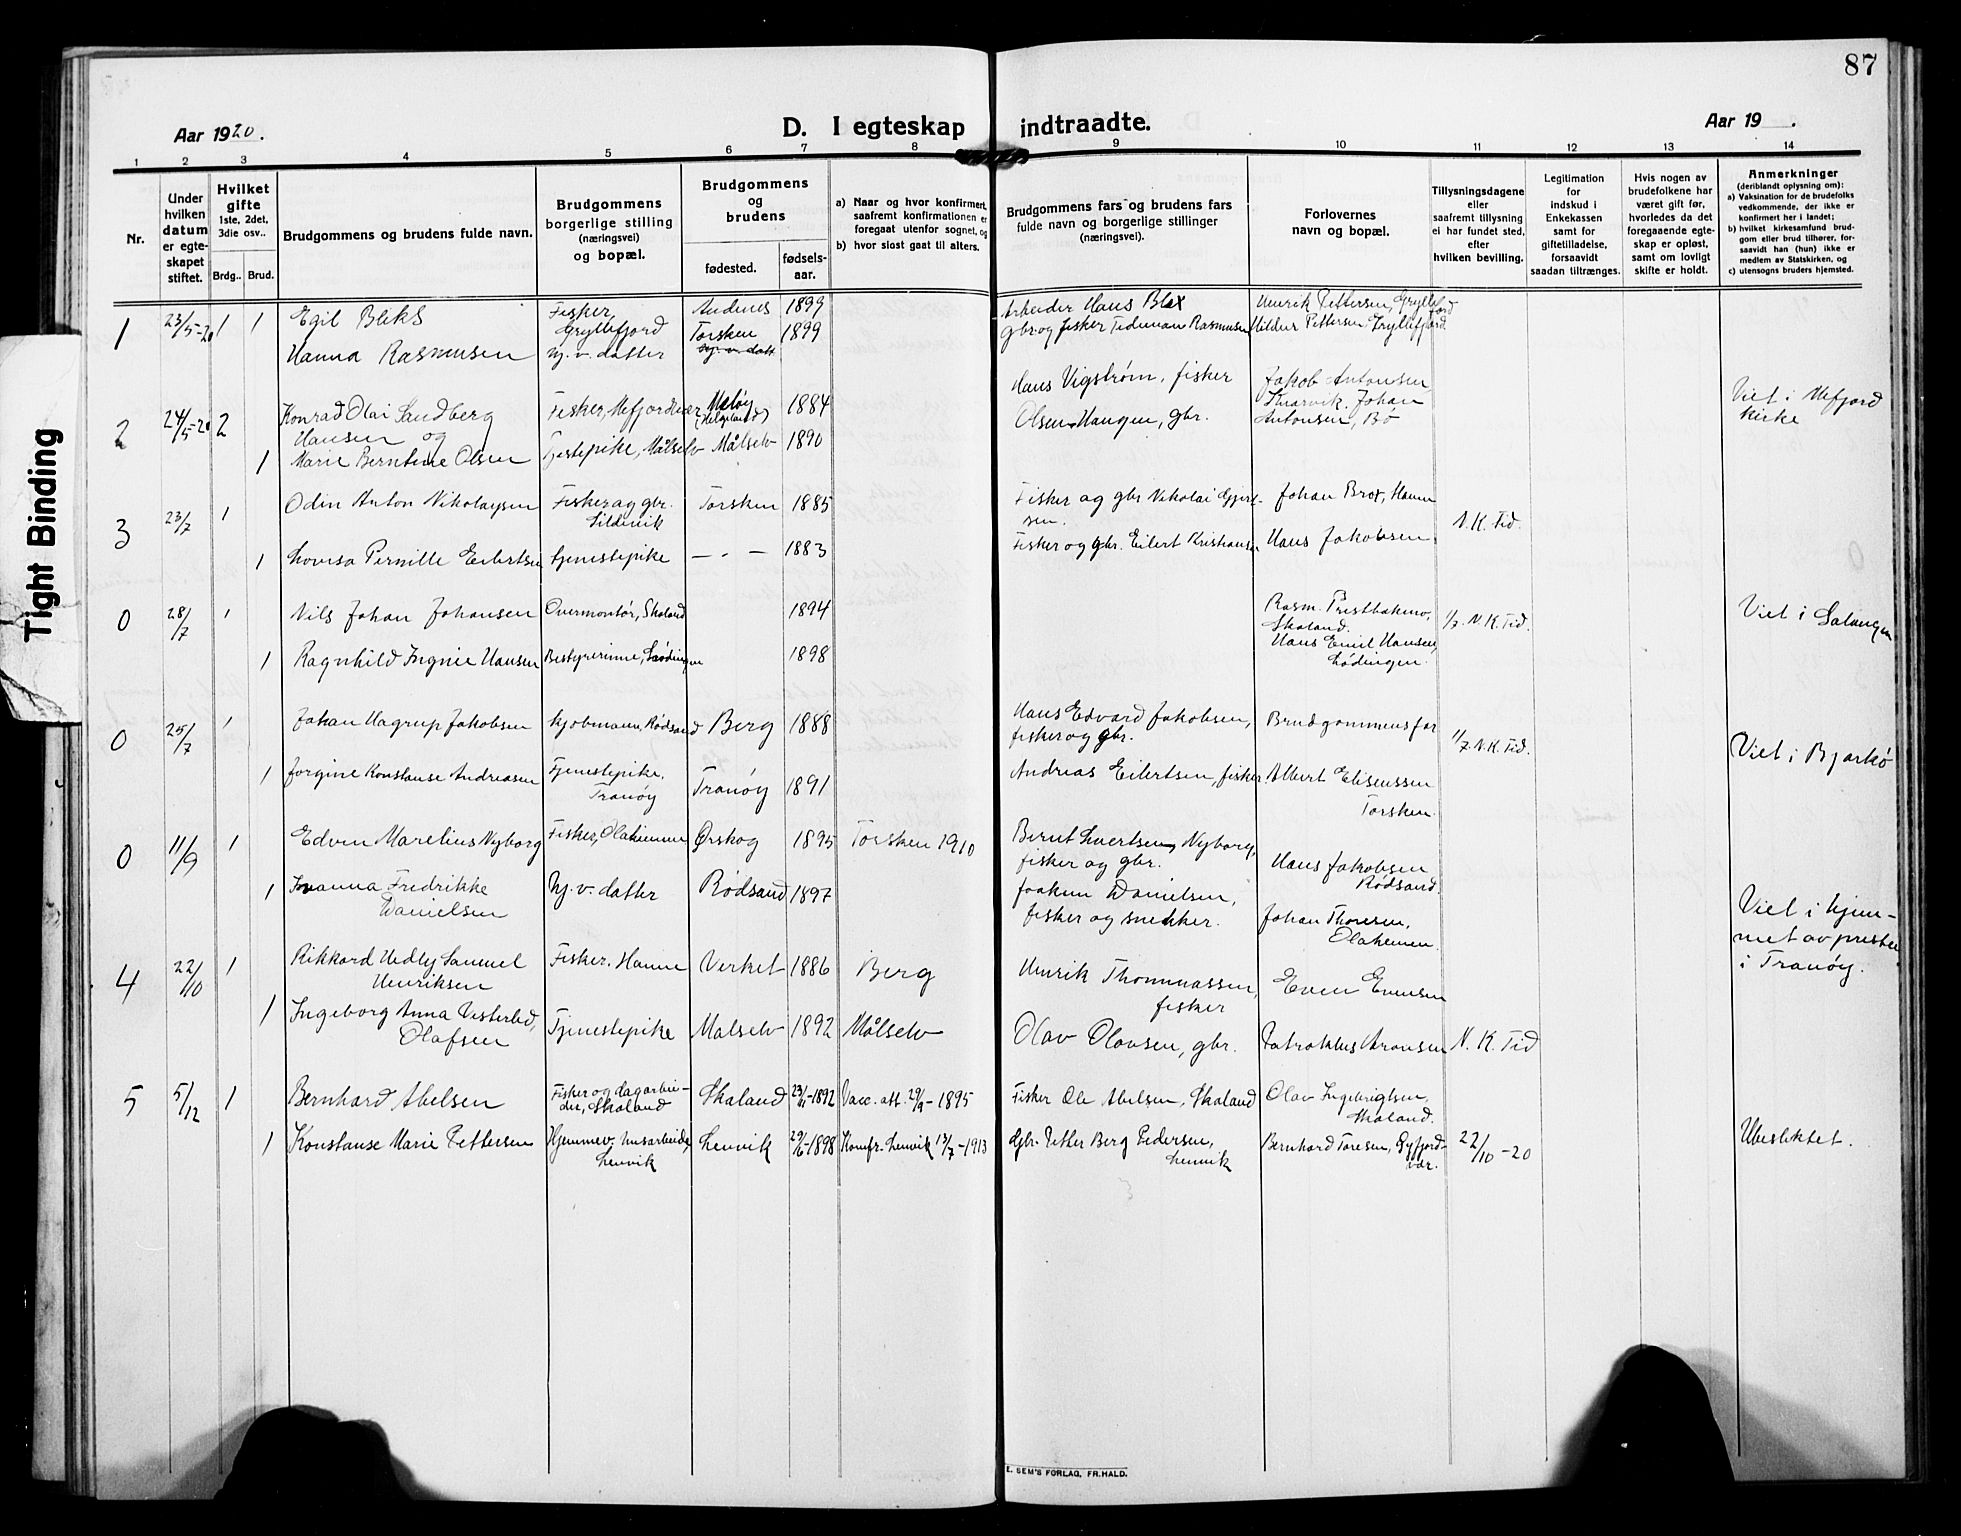 87
Aar 1920.
D. I egteskap indtraadte.
Aar 19 .
1 2 3 4 5 6 7 8 9 10 11 12 13 14
Nr.
Under
hvilken
datum
er egte-
skapet
stiftet.
Hvilket
gifte
1ste, 2det,
3die osv..
Brdg.. Brud.
Brudgommens og brudens fulde navn.
Brudgommens
borgerlige stilling
(næringsvei)
og bopæl.
Brudgommens
og
brudens
fødested.
fødsels-
aar.
a) Naar og hvor konfirmert,
saafremt konfirmationen er
foregaat utenfor sognet, og
b) hvor sidst gaat til alters.
Brudgommens fars og brudens fars
fulde navn og borgerlige stillinger
(næringsvei).
Forlovernes
navn og bopæl.
Tillysningsdagene
eller
saafremt tillysning
ei har fundet sted,
efter
hvilken bevilling.
Legitimation
for
indskud i
Enkekassen
samt for
giftetilladelse,
forsaavidt
saadan tiltrænges.
Hvis nogen av
brudefolkene har
været gift før,
hvorledes da det
foregaaende egte-
skap er opløst,
samt om lovligt
skifte er holdt.
Anmerkninger
(deriblandt oplysning om):
a) Vaksination for de brudefolks
vedkommende, der ikke er
konfirmert her i landet;
b) hvilket kirkesamfund brud-
gom eller brud tilhører, for-
saavidt han (hun) ikke er
medlem av Statskirken, og
c) utensogns bruders hjemsted.
1 23/5-20 1 1 Egil Bleks Fisker, Gryllefjord Andenes 1899 Arbeider Hans Blex Henrik Pettersen, Gryllefjord
Hanna Rasmusen Hj. v. datter Torsken 1899 gbr og fisker Tideman Rasmusen Hildur Pettersen Gryllefjord
Hj. v. datt
2 24/5-20 2 Konrad Olai Sandberg Hansen og Fisker, Mefjordvær Meløy (Helgeland) 1884 Hans Vigstrøm, fisker Jakob Antonsen Viet i Mefjord kirke
1 Marie Berntine Olsen Tjestepike, Målselv Målselv 1890 Olsen Haugen, gbr. Johan Antonsen, Bø
3 23/7 1 Odin Anton Nikolaysen Fisker og gbr. Sildvik Torsken 1885 Fisker og gbr Nikolai Johan Brox, Hamn N. K. Tid.
1 Lovisa Pernille Eilertsen tjenestepike — " — 1883 Fisker og gbr. Eilert Kristiansen Hans Jakobsen.
0 28/7 1 Nils Johan Johansen Overmontør, Skaland 1894 Rasm. Skaland. 1/7. N. K. Tid. Viet i Salangen
1 Ragnhild Ingnie Hansen Bestyrerinne, Lødingen 1898 Hans Emil Hansen, Lødingen.
0 25/7 1 Johan Hagrup Jakobsen kjøbmann, Rødsand Berg 1888 Hans Edvard Jakobsen, fisker og gbr. Brudgommens far 1/7. N. K. Tid. Viet i Bjarkø
1 Jorgine Konstanse Andreasen Tjenestepike, Tranøy Tranøy 1891 Andreas Eilertsen, fisker Albert Eliseussen Torsken.
0 11/9 1 Edvin Marelius Nyborg Fisker, Olaheimen Ørskog 1895 Torsken 1910 Bernt Nyborg, fisker og gbr. Hans Jakobsen Rødsand.
1 Ivanna Fredrikke Danielsen Hj. v. datter Rødsand 1897 Joakim Danielsen, fisker og snekker. Johan Thoresen, Olaheimen. Viet i hjem-
met av presten
i Tranøy.
4 22/10 1 Rikkard Hedly Samuel Henriksen Fisker. Hamn Verket 1886 Berg Henrik Thommassen, fisker Even Evensen
1 Ingeborg Anna Vesterlid, Olafsen Tjenestepike Målselv 1892 Målselv Olav Olavsen, gbr. Patroklus Aronsen N. K. Tid
5 5/12 1 Bernhard Abelsen Fisker og dagarbei-
der, Skaland Skaland 23/11-1892 Vacc. att. 29/9-1895 Fisker Ole Abelsen, Skaland Olav Ingebrigtsen, Skaland.
1 Konstanse Marie Pettersen Hjemmev. husarbeide, Lenvik Lenvik 29/6-1898 Konfr. Lenvik 13/7-1913 Gbr. Petter Berg Pedersen, Lenvik Bernhard Toresen, Gyfjord-
vær. 22/10-20 Ubeslektet.
E. SEM'S FORLAG, FR.HALD.
Tight Binding